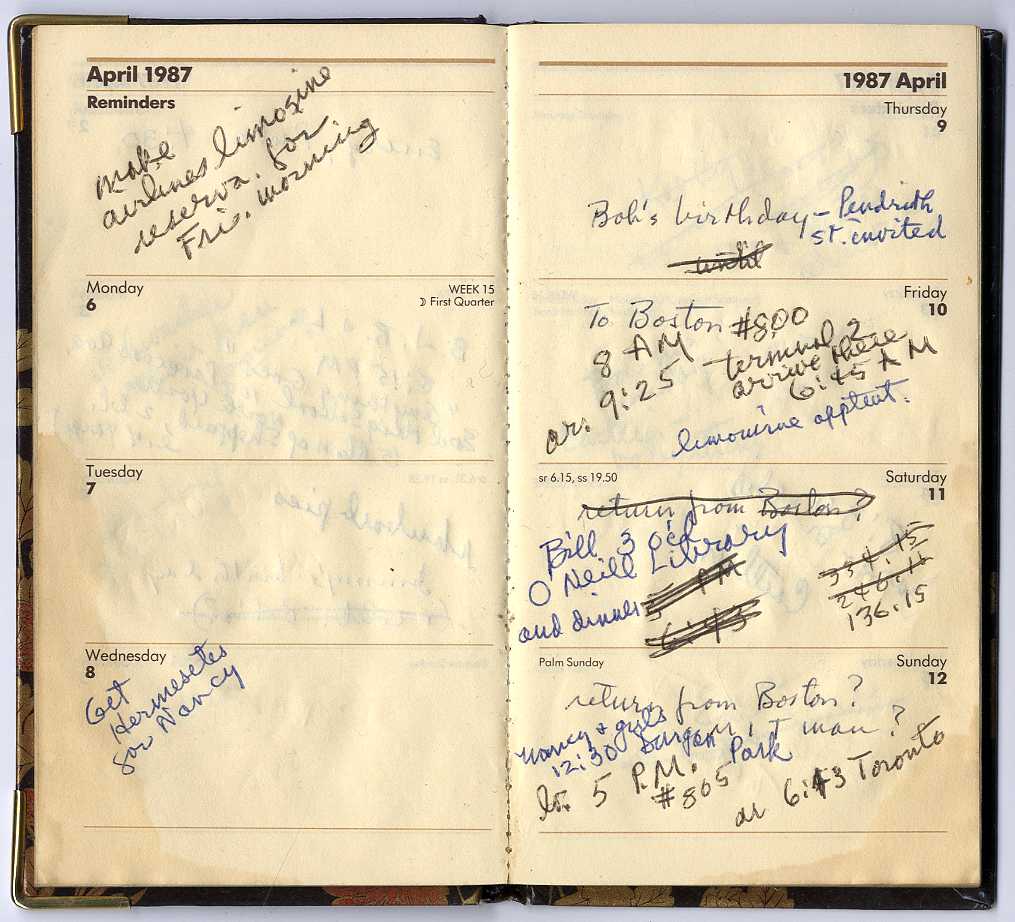 April 1987
Reminders
make
airlines limosine
reserva. for
Fri. morning
Monday
6
WEEK 15
☽ First Quarter
Tuesday
7
Wednesday
8
Get
Hermesetes
for Nancy
1987 April
Thursday
9
Bob's birthday – Pendrith
st. invited
until
Friday
10
To Boston #800
8 AM terminal 2
ar. 9:25 arrive there
6:45 AM
limousine
sr 6.15, ss 19.50
Saturday
11
return from Boston?
Bill 3 
O'Neill Library
and dinner
PM
6:43
334.15
246.15
136.15
Palm Sunday
Sunday
12
return from Boston?
Nancy & girls
12:30 Park
lv. 5 P.M.
#805
ar 6:43 Toronto